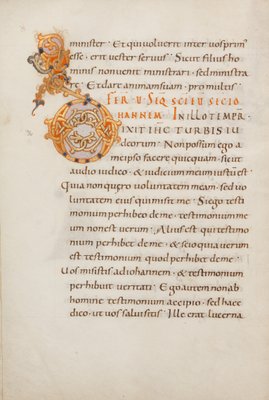 minister · Et qui voluerit inter vos prim
esse · erit vester servus · Sicut filius ho
minis non venit ministrari · sed ministra
re · Et dart animam suam · pro multis ·
FER · U · SEQ SCI EU SEC IO
HANNEM · IN ILLO TEMPR
DIXIT IHC TURBIS IU
deorum · Non possum ego a
me ipso facere quicquam · sicut
audio iudico · & iudicium meum iustu est
Quia non quero voluntatem meam · sed vo
luntatem eius qui misit me · Si ego testi
monium perhibeo de me · testimonium me
um non est verum · Alius est qui testimo
nium perhibet de me · & scio quia verum
est testimonium quod perhibet de me ·
Vos misistis ad iohannem · & testimonium
perhibuit veritati · Ego autem non ab
homine testimonium accipio · sed haec
dico · ut vos salvi sitis · Ille erat lucerna